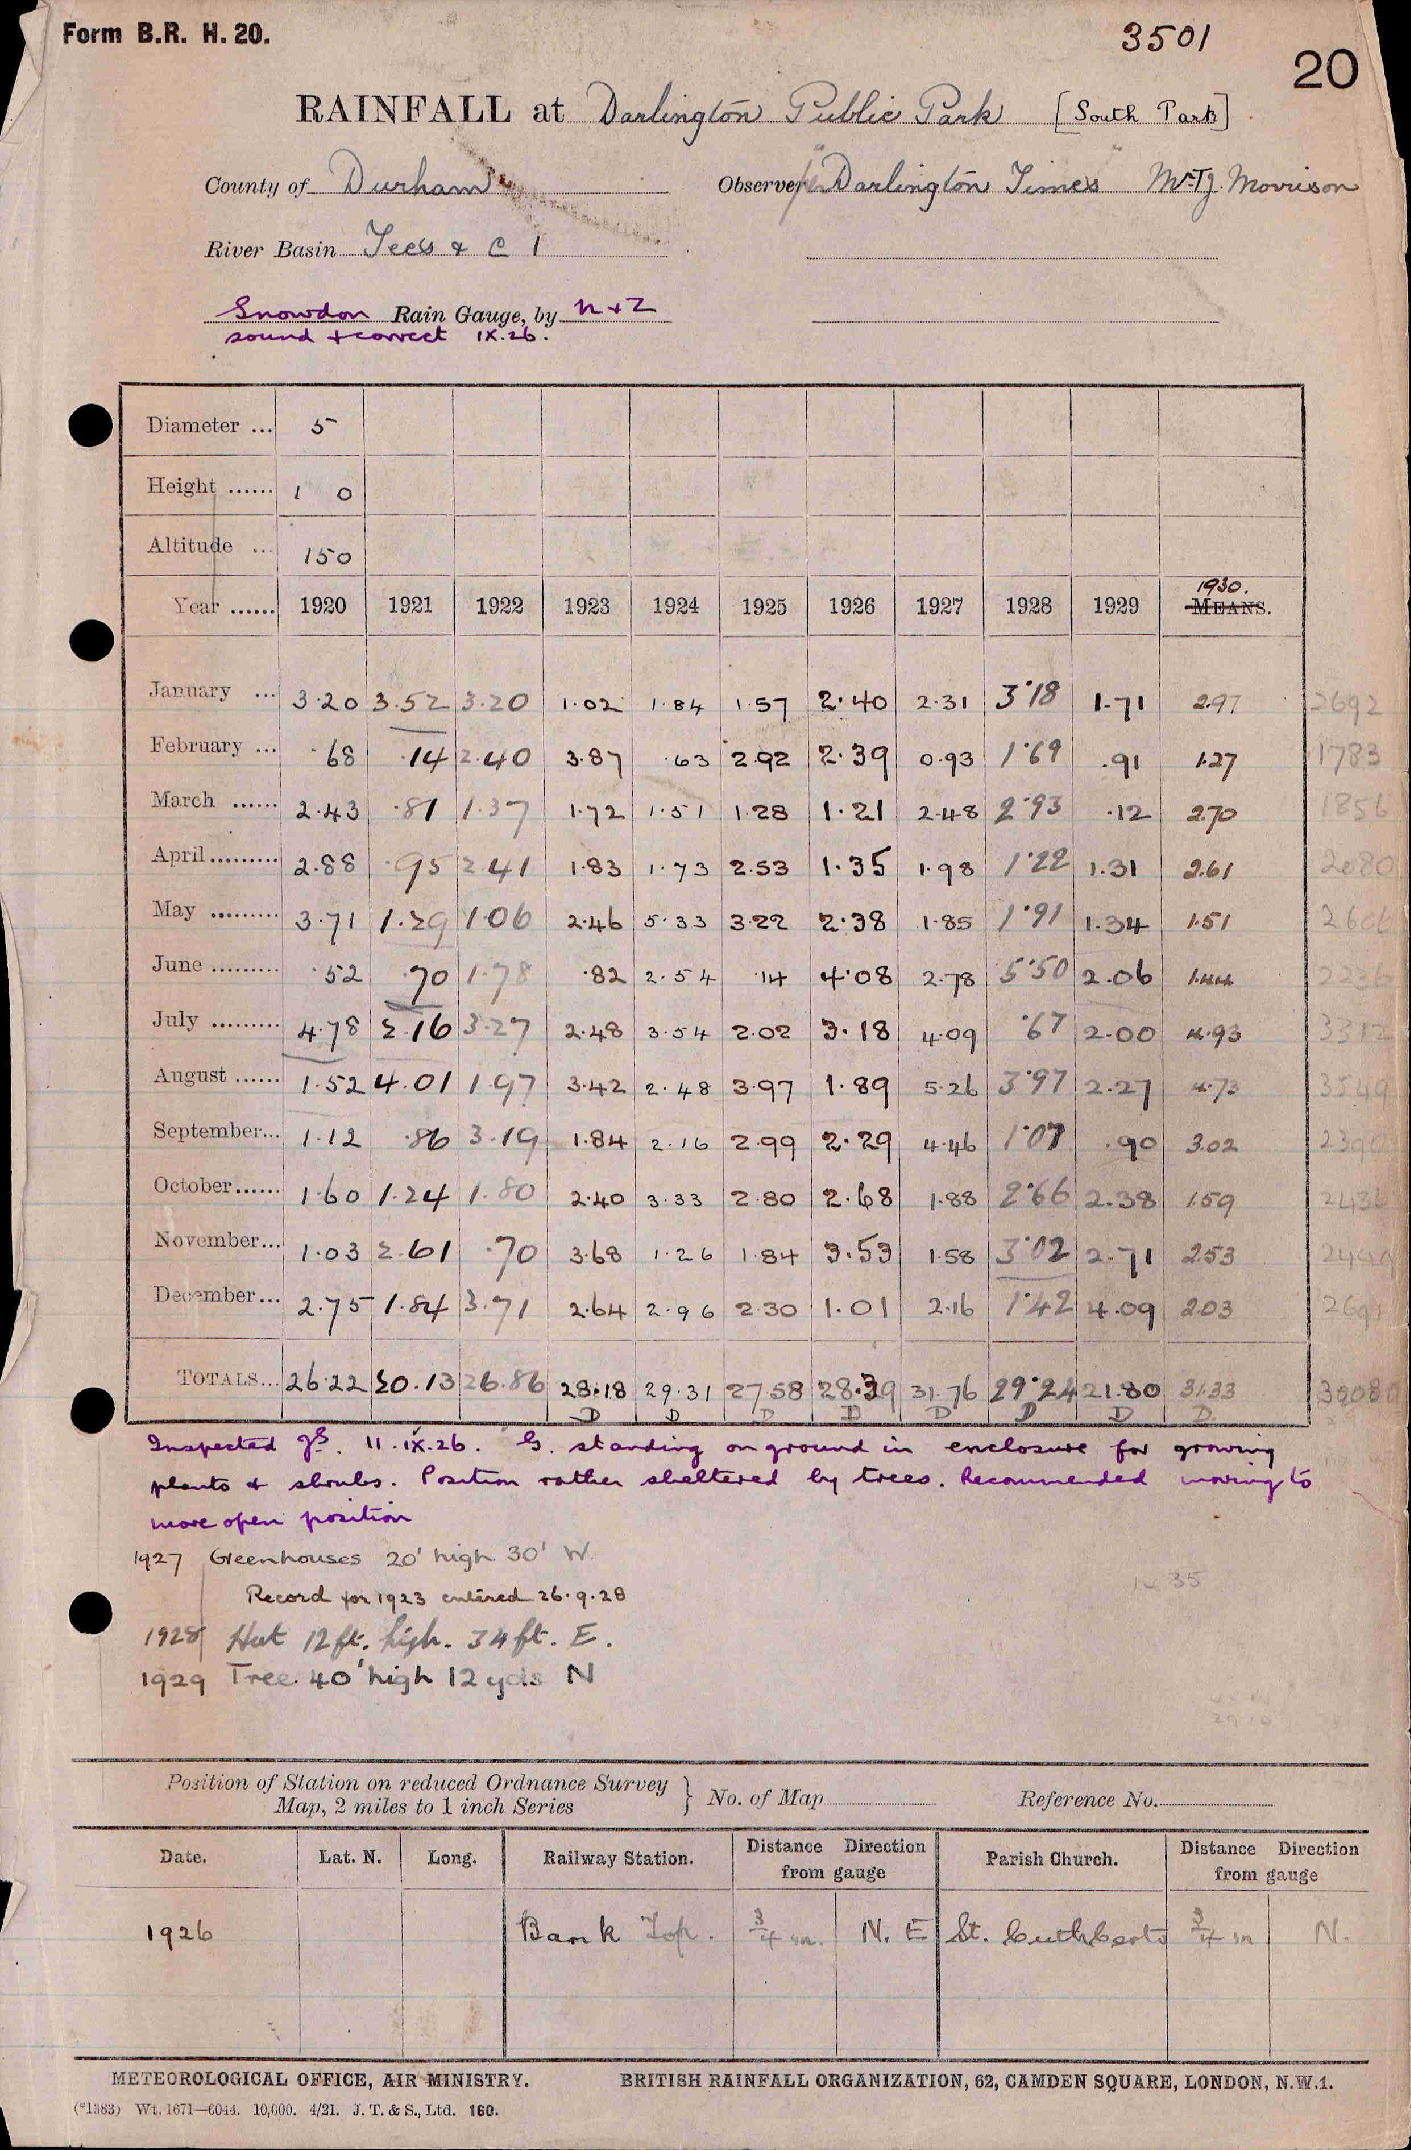 Form B.R. H. 20.
3501
20
RAINFALL at Darlington Public Park [South Park]
County of Durham Observer per "Darlington Times" Mr T.J. Morrison
River Basin Tees & C 1
Snowdon Rain Gauge, by N + Z
sound + correct IX.26.
Diameter ... 5
Height ...... 1 0
Altitude ... 150
Year ...... 1920 1921 1922 1923 1924 1925 1926 1927 1928 1929 1930. MEANS.
January ... 3.20 3.52 3.20 1.02 1.84 1.57 2.40 2.31 3.18 1.71 2.97 2692
February ... .68 .14 2.40 3.87 .63 2.92 2.39 0.93 1.69 .91 1.27 1783
March ...... 2.43 .81 1.37 1.72 1.51 1.28 1.21 2.48 2.93 .12 2.70 1856
April ......... 2.88 .95 2.41 1.83 1.73 2.53 1.35 1.98 1.22 1.31 2.61 2080
May ......... 3.71 1.29 1.06 2.46 5.33 3.22 2.38 1.85 1.91 1.34 1.51 2606
June ......... .52 .70 1.78 .82 2.54 .14 4.08 2.78 5.50 2.06 1.44 2236
July ......... 4.78 2.16 3.27 2.48 3.54 2.02 3.18 4.09 .67 2.00 4.93 3312
August ...... 1.52 4.01 1.97 3.42 2.48 3.97 1.89 5.26 3.97 2.27 4.73 3549
September... 1.12 .86 3.19 1.84 2.16 2.99 2.29 4.46 1.07 .90 3.02 2390
October...... 1.60 1.24 1.80 2.40 3.33 2.80 2.68 1.88 2.66 2.38 1.59 2436
November... 1.03 2.61 .70 3.68 1.26 1.84 3.53 1.58 3.02 2.71 2.53
December... 2.75 1.84 3.71 2.64 2.96 2.30 1.01 2.16 1.42 4.09 2.03
TOTALS... 26.22 20.13 26.86 28.18 29.31 27.58 28.39 31.76 29.24 21.80 31.33
D D D D D D D D
Inspected 11.IX.26. G. standing on ground in enclosure for growing
plants & shrubs. Position rather sheltered by trees. Recommended moving to
more open position
1927 Greenhouses 20' high 30' W.
Record for 1923 entered 26.9.28
1928 Hut 12 ft. high. 34 ft. E.
1929 Tree 40' high 12 yds N
Position of Station on reduced Ordnance Survey
Map, 2 miles to 1 inch Series } No. of Map Reference No.
Date. Lat. N. Long. Railway Station. Distance Direction from gauge Parish Church. Distance Direction from gauge
1926 Bank Top. 3/4 m. N. E St. Cuthberts 3/4 m N.
METEOROLOGICAL OFFICE, AIR MINISTRY. BRITISH RAINFALL ORGANIZATION, 62, CAMDEN SQUARE, LONDON, N.W.1.
(*1383) Wt. 1671—6044. 10,000. 4/21. J. T. & S., Ltd. 160.